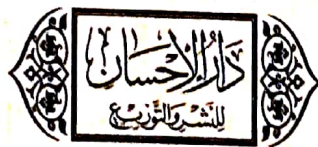 دَارُ الْإِحْسَانِ
لِلنَّشْرِ وَالتَّوْزِيعِ